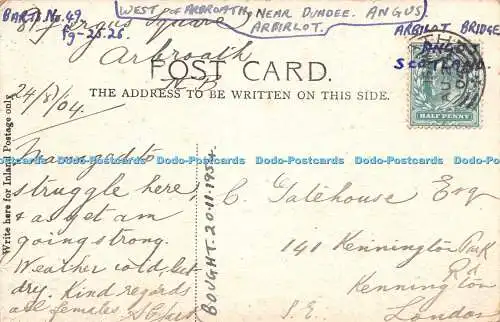 BARTS No. 49.
Pg-25.26.
WEST OF ARBROATH, NEAR DUNDEE. ANGUS.
ARBIRLOT.
ARBILOT BRIDGE
ANGUS
SCOTLAND.
Square
Arbroath
N.B.
POST CARD.
THE ADDRESS TO BE WRITTEN ON THIS SIDE.
HALF PENNY
24/5/04.
Write here for Inland Postage only.
Managed to
struggle here,
& as yet am
going strong.
Weather cold, but
dry. Kind regards
all females
BOUGHT. 20.11.1954.
C. Gatehouse Esq
141 Kennington Park
Rd
Kennington
S.E. London
Dodo-Postcards Dodo-Postcards Dodo-Postcards Dodo-Postcards Dodo-Postcards Dodo-Postcards